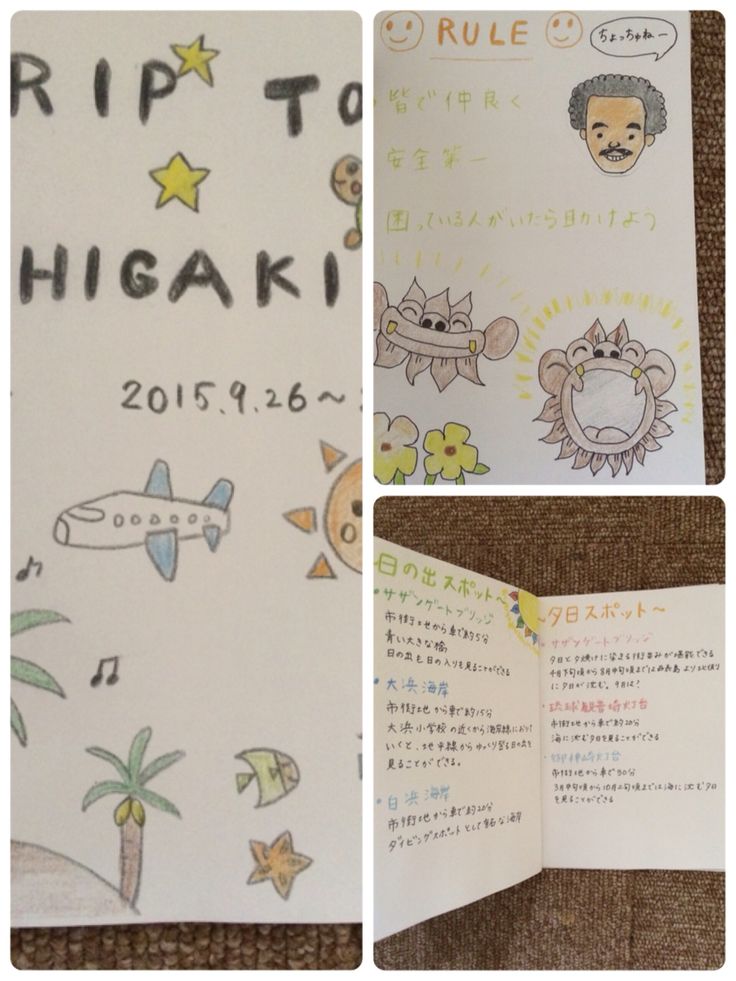 RIP TO
HIGAKI
2015.9.26〜
RULE
ちょっちゅねー
皆で仲良く
安全第一
困っている人がいたら助けよう
日の出スポット〜
・サザンゲートブリッジ
市街地から車で約5分
青い大きな橋
日の出も日の入りも見ることができる
・大浜海岸
市街地から車で約15分
大浜小学校の近くから海岸線におりて
いくと、地平線からゆっくり登る日の出を
見ることができる。
・白浜海岸
市街地から車で約20分
ダイビングスポットとして有名な海岸
〜夕日スポット〜
・サザンゲートブリッジ
夕日と夕焼けに染まる街並みが堪能できる
4月下旬頃から8月中旬頃までは西表島より北側
に夕日が沈む。9月は?
・琉球観音埼灯台
市街地から車で約20分
海に沈む夕日を見ることができる
・御神崎灯台
市街地から車で30分
3月中旬頃から10月上旬頃までは海に沈む夕日
を見ることができる